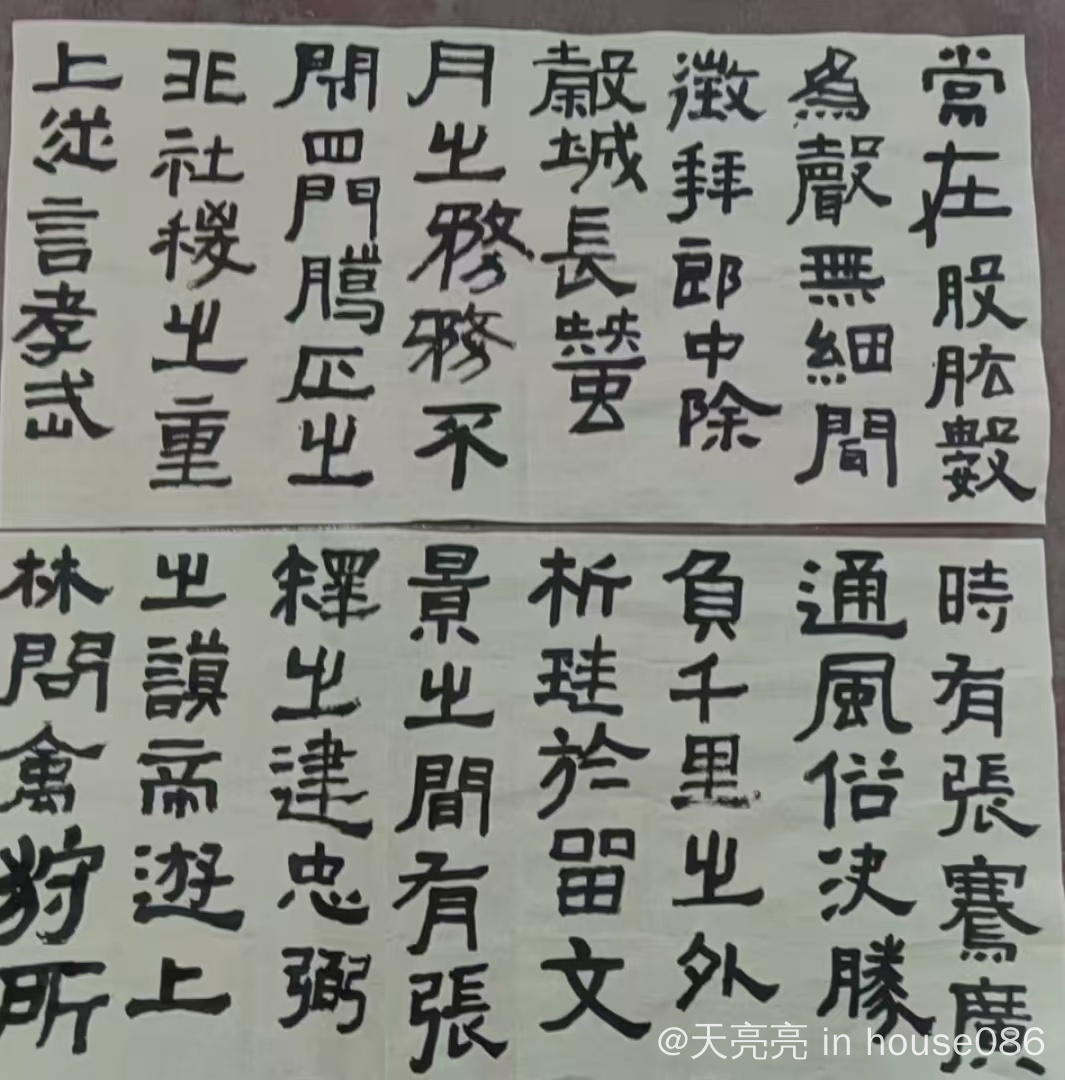 常在股肱數
為聲無細間
徵拜郎中除
穀城長蠶
月之務務不
閉四門臘正之
非社稷之重
上從言孝武
時有張騫廣
通風俗決勝
負千里之外
析珪於留文
景之間有張
釋之建忠弼
之謨帝遊上
林問禽狩所
@天亮亮 in house086